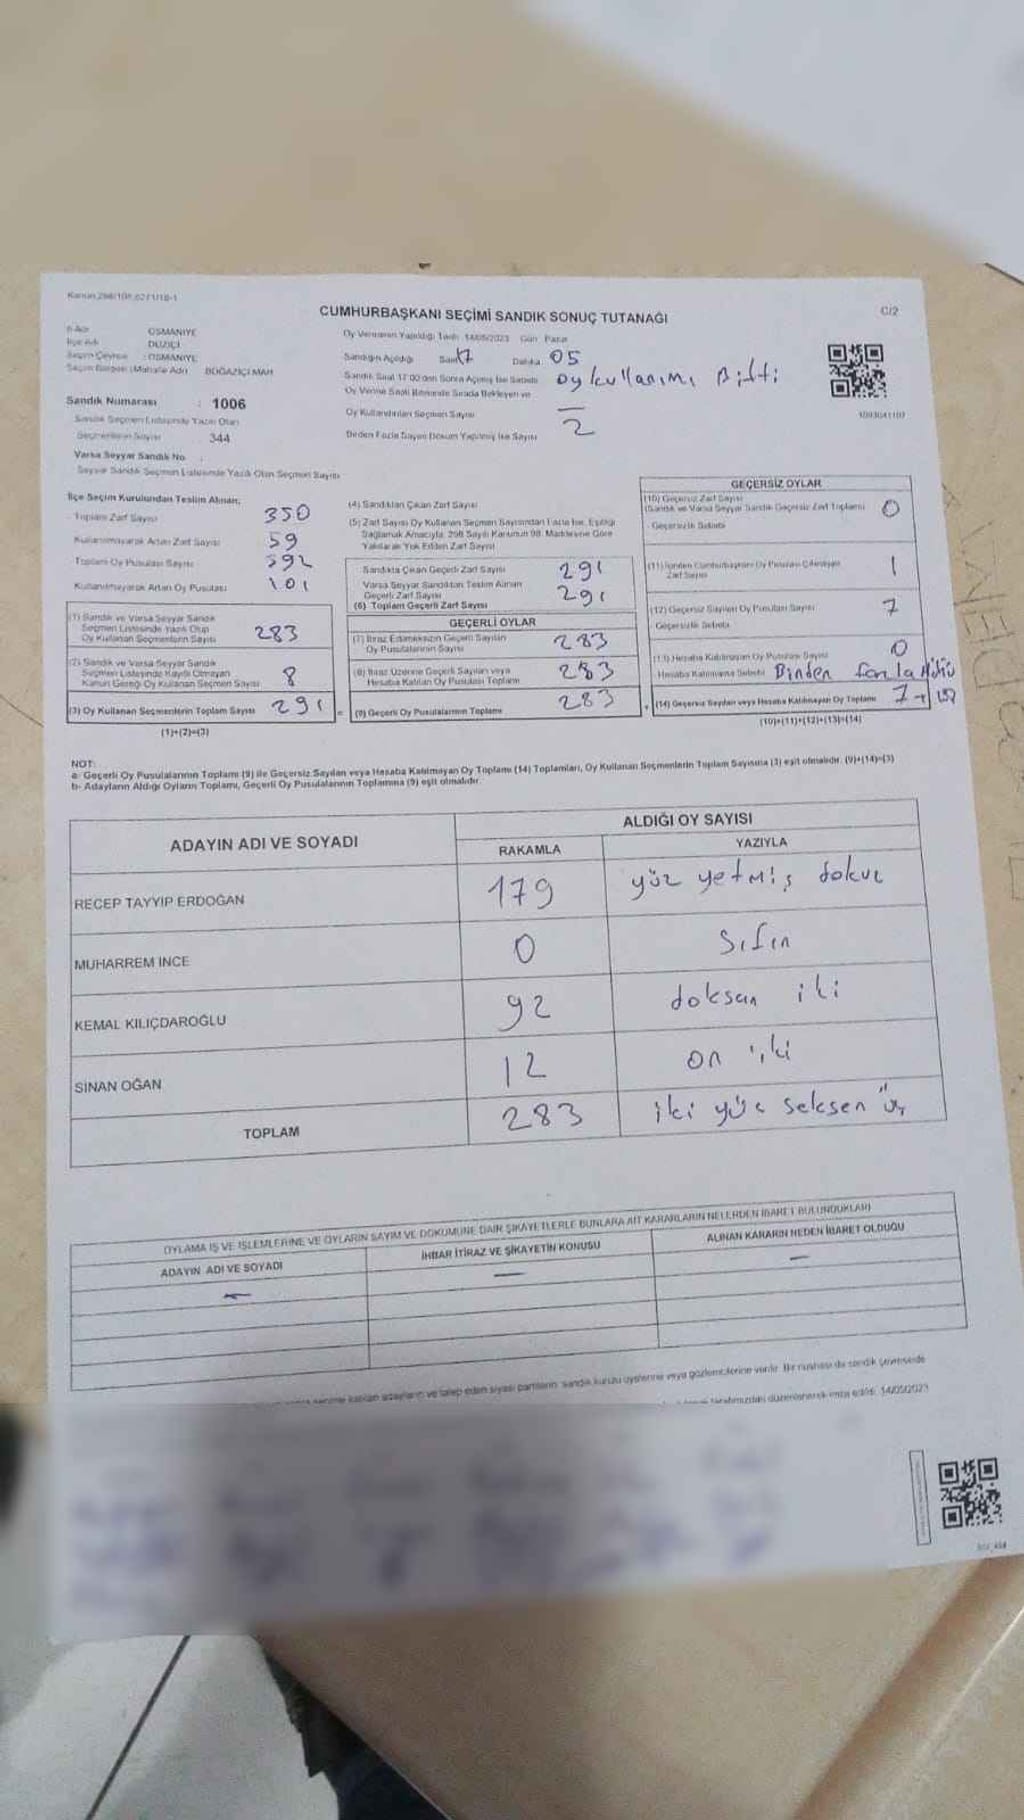 CUMHURBAŞKANI SEÇİMİ SANDIK SONUÇ TUTANAĞI
C/2
İl Adı OSMANİYE
İlçe Adı DÜZİÇİ
Seçim Çevresi : OSMANİYE
BOĞAZİÇİ MAH
Sandık Numarası : 1006
Sandık Seçmen Listesinde Yazılı Olan
Seçmenlerin Sayısı 344
Varsa Seyyar Sandık No :
Seyyar Sandık Seçmen Listesinde Yazılı Olan Seçmen Sayısı
Oy Vermenin Yapıldığı Tarih 14/05/2023 Gün Pazar
Sandığın Açıldığı Saat 17 Dakika 05
Sandık Saat 17:00'den Sonra Açılmış İse Sebebi oy kullanımı Bitti
Oy Verme Saati Bitiminde Sırada Bekleyen ve
Oy Kullandırılan Seçmen Sayısı —
Birden Fazla Sayım Döküm Yapılmış İse Sayısı 2
İlçe Seçim Kurulundan Teslim Alınan;
Toplam Zarf Sayısı 350
Kullanılmayarak Artan Zarf Sayısı 59
Toplam Oy Pusulası Sayısı 392
Kullanılmayarak Artan Oy Pusulası 101
(1) Sandık ve Varsa Seyyar Sandık
Seçmen Listesinde Yazılı Olup
Oy Kullanan Seçmenlerin Sayısı 283
(2) Sandık ve Varsa Seyyar Sandık
Seçmen Listesinde Kayıtlı Olmayan
Kanun Gereği Oy Kullanan Seçmen Sayısı 8
(3) Oy Kullanan Seçmenlerin Toplam Sayısı 291
(1)+(2)=(3)
(4) Sandıktan Çıkan Zarf Sayısı
(5) Zarf Sayısı Oy Kullanan Seçmen Sayısından Fazla İse, Eşitliği
Sağlamak Amacıyla, 298 Sayılı Kanunun 98. Maddesine Göre
Yakılarak Yok Edilen Zarf Sayısı
Sandıkta Çıkan Geçerli Zarf Sayısı 291
Varsa Seyyar Sandıktan Teslim Alınan
Geçerli Zarf Sayısı 291
(6) Toplam Geçerli Zarf Sayısı
GEÇERLİ OYLAR
(7) İtiraz Edilmeksizin Geçerli Sayılan
Oy Pusulalarının Sayısı 283
(8) İtiraz Üzerine Geçerli Sayılan veya
Hesaba Katılan Oy Pusulası Toplamı 283
(9) Geçerli Oy Pusulalarının Toplamı 283
GEÇERSİZ OYLAR
(10) Geçersiz Zarf Sayısı
(Sandık ve Varsa Seyyar Sandık Geçersiz Zarf Toplamı) 0
Geçersizlik Sebebi
(11) İçinden Cumhurbaşkanı Oy Pusulası Çıkmayan
Zarf Sayısı 1
(12) Geçersiz Sayılan Oy Pusulası Sayısı 7
Geçersizlik Sebebi
(13) Hesaba Katılmayan Oy Pusulası Sayısı 0
Hesaba Katılmama Sebebi Birden fazla
(14) Geçersiz Sayılan veya Hesaba Katılmayan Oy Toplamı 7
(10)+(11)+(12)+(13)=(14)
NOT:
a- Geçerli Oy Pusulalarının Toplamı (9) ile Geçersiz Sayılan veya Hesaba Katılmayan Oy Toplamı (14) Toplamları, Oy Kullanan Seçmenlerin Toplam Sayısına (3) eşit olmalıdır. (9)+(14)=(3)
b- Adayların Aldığı Oyların Toplamı, Geçerli Oy Pusulalarının Toplamına (9) eşit olmalıdır.
ADAYIN ADI VE SOYADI
ALDIĞI OY SAYISI
RAKAMLA YAZIYLA
RECEP TAYYİP ERDOĞAN 179 yüz yetmiş dokuz
MUHARREM İNCE 0 Sıfır
KEMAL KILIÇDAROĞLU 92 doksan iki
SİNAN OĞAN 12 on iki
TOPLAM 283 iki yüz seksen üç
OYLAMA İŞ VE İŞLEMLERİNE VE OYLARIN SAYIM VE DÖKÜMÜNE DAİR ŞİKAYETLERLE BUNLARA AİT KARARLARIN NELERDEN İBARET BULUNDUKLARI
ADAYIN ADI VE SOYADI İHBAR İTİRAZ VE ŞİKAYETİN KONUSU ALINAN KARARIN NEDEN İBARET OLDUĞU
— — —
adayların ve talep eden siyasi partilerin sandık kurulu üyelerine veya gözlemcilerine verilir. Bir nüshası da sandık çevresinde
tarafımızdan düzenlenerek imza edildi. 14/05/2023